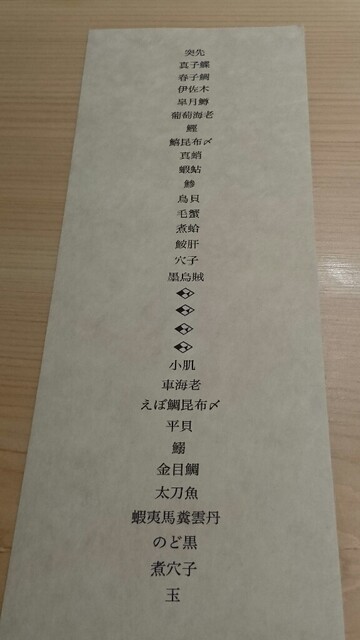 突先
真子鰈
春子鯛
伊佐木
皐月鱒
葡萄海老
鰹
鱚昆布〆
真蛸
蝦鮎
鯵
鳥貝
毛蟹
煮蛤
鮟肝
穴子
墨烏賊
小肌
車海老
えぼ鯛昆布〆
平貝
鰯
金目鯛
太刀魚
蝦夷馬糞雲丹
のど黒
煮穴子
玉